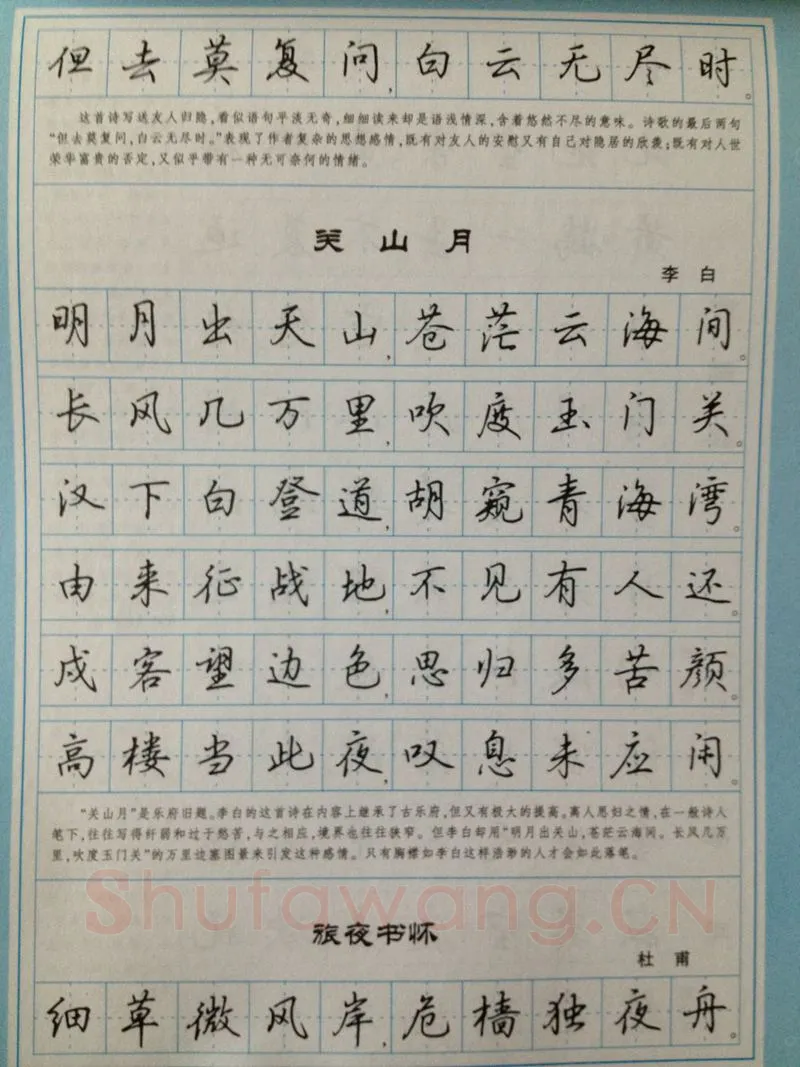 但去莫复问,白云无尽时。
这首诗写送友人归隐,看似语句平淡无奇,细细读来却是语浅情深,含着悠然不尽的意味。诗歌的最后两句
“但去莫复问,白云无尽时。”表现了作者复杂的思想感情,既有对友人的安慰又有自己对隐居的欣羡;既有对人世
荣华富贵的否定,又似乎带有一种无可奈何的情绪。
关山月
李白
明月出天山,苍茫云海间。
长风几万里,吹度玉门关。
汉下白登道,胡窥青海湾。
由来征战地,不见有人还。
戍客望边色,思归多苦颜。
高楼当此夜,叹息未应闲。
“关山月”是乐府旧题。李白的这首诗在内容上继承了古乐府,但又有极大的提高。离人思妇之情,在一般诗人
笔下,往往写得纤弱和过于愁苦,与之相应,境界也往往狭窄。但李白却用“明月出关山,苍茫云海间。长风几万
里,吹度玉门关”的万里边塞图景来引发这种感情。只有胸襟如李白这样浩渺的人才会如此落笔。
Shufawang.CN
旅夜书怀
杜甫
细草微风岸,危樯独夜舟。